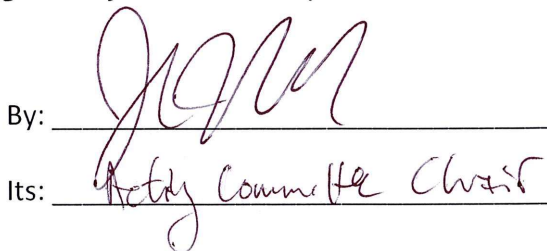 By:
Its: Acting Committee Chair